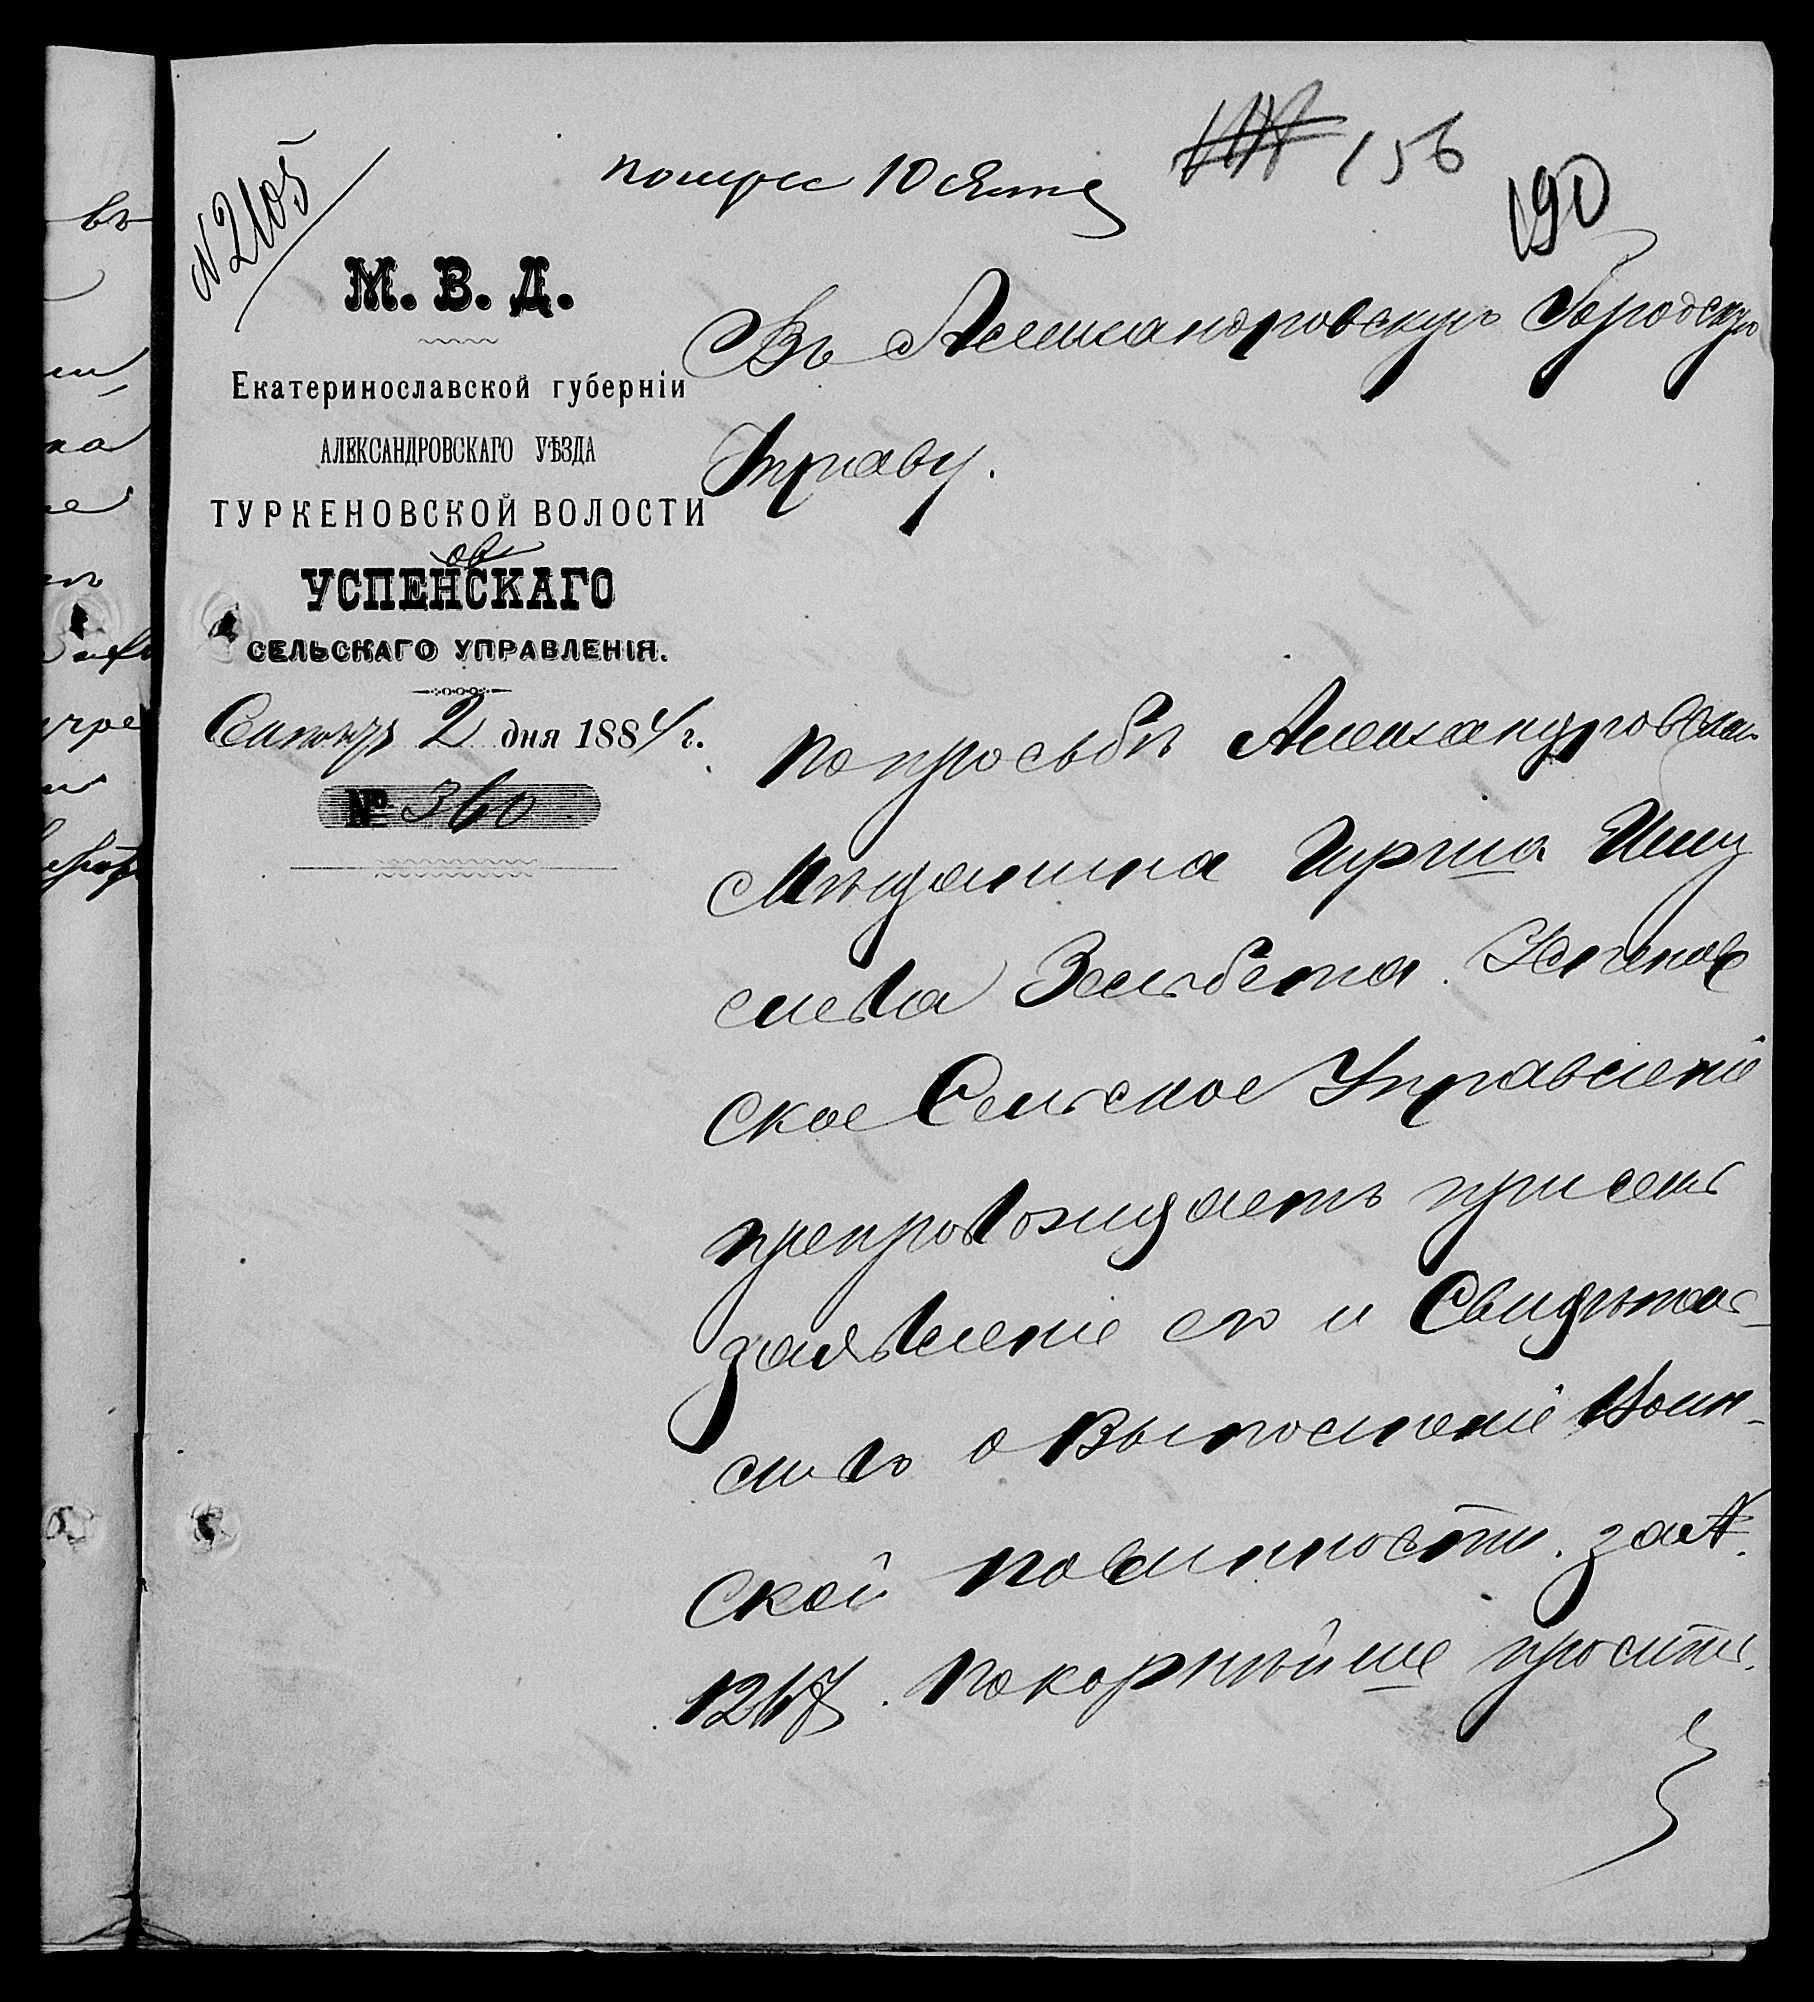 № 2105
получ 10 Сент
156
190
М. В. Д.
Екатеринославской губерніи
АЛЕКСАНДРОВСКАГО УѢЗДА
ТУРКЕНОВСКОЙ ВОЛОСТИ
ов
УСПЕНСКАГО
СЕЛЬСКАГО УПРАВЛЕНІЯ.
2 дня 1884 г.
№ 360
Въ Александровскую Городскую
Управу.
По просьбѣ Александровскаго
Мѣщанина Гирша Ицц
елева Зельбета. Успенов
ское Сельское Управленіе
препровождаетъ присемъ
заявленіе его и Свидѣтель-
ство о Выполненіе Воин-
ской повинности. за №
1217. Покорнѣйше просить